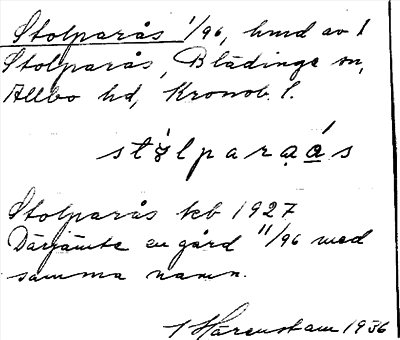 Stolparås 1/96, hmd av 1
Stolparås, Blädinge sn,
Allbo hd, Kronob. l.
stɷ́lpara̤á̤s
Stolparås kcb 1927
Därjämte en gård 11/96 med
samma namn.
Härenstam 1936